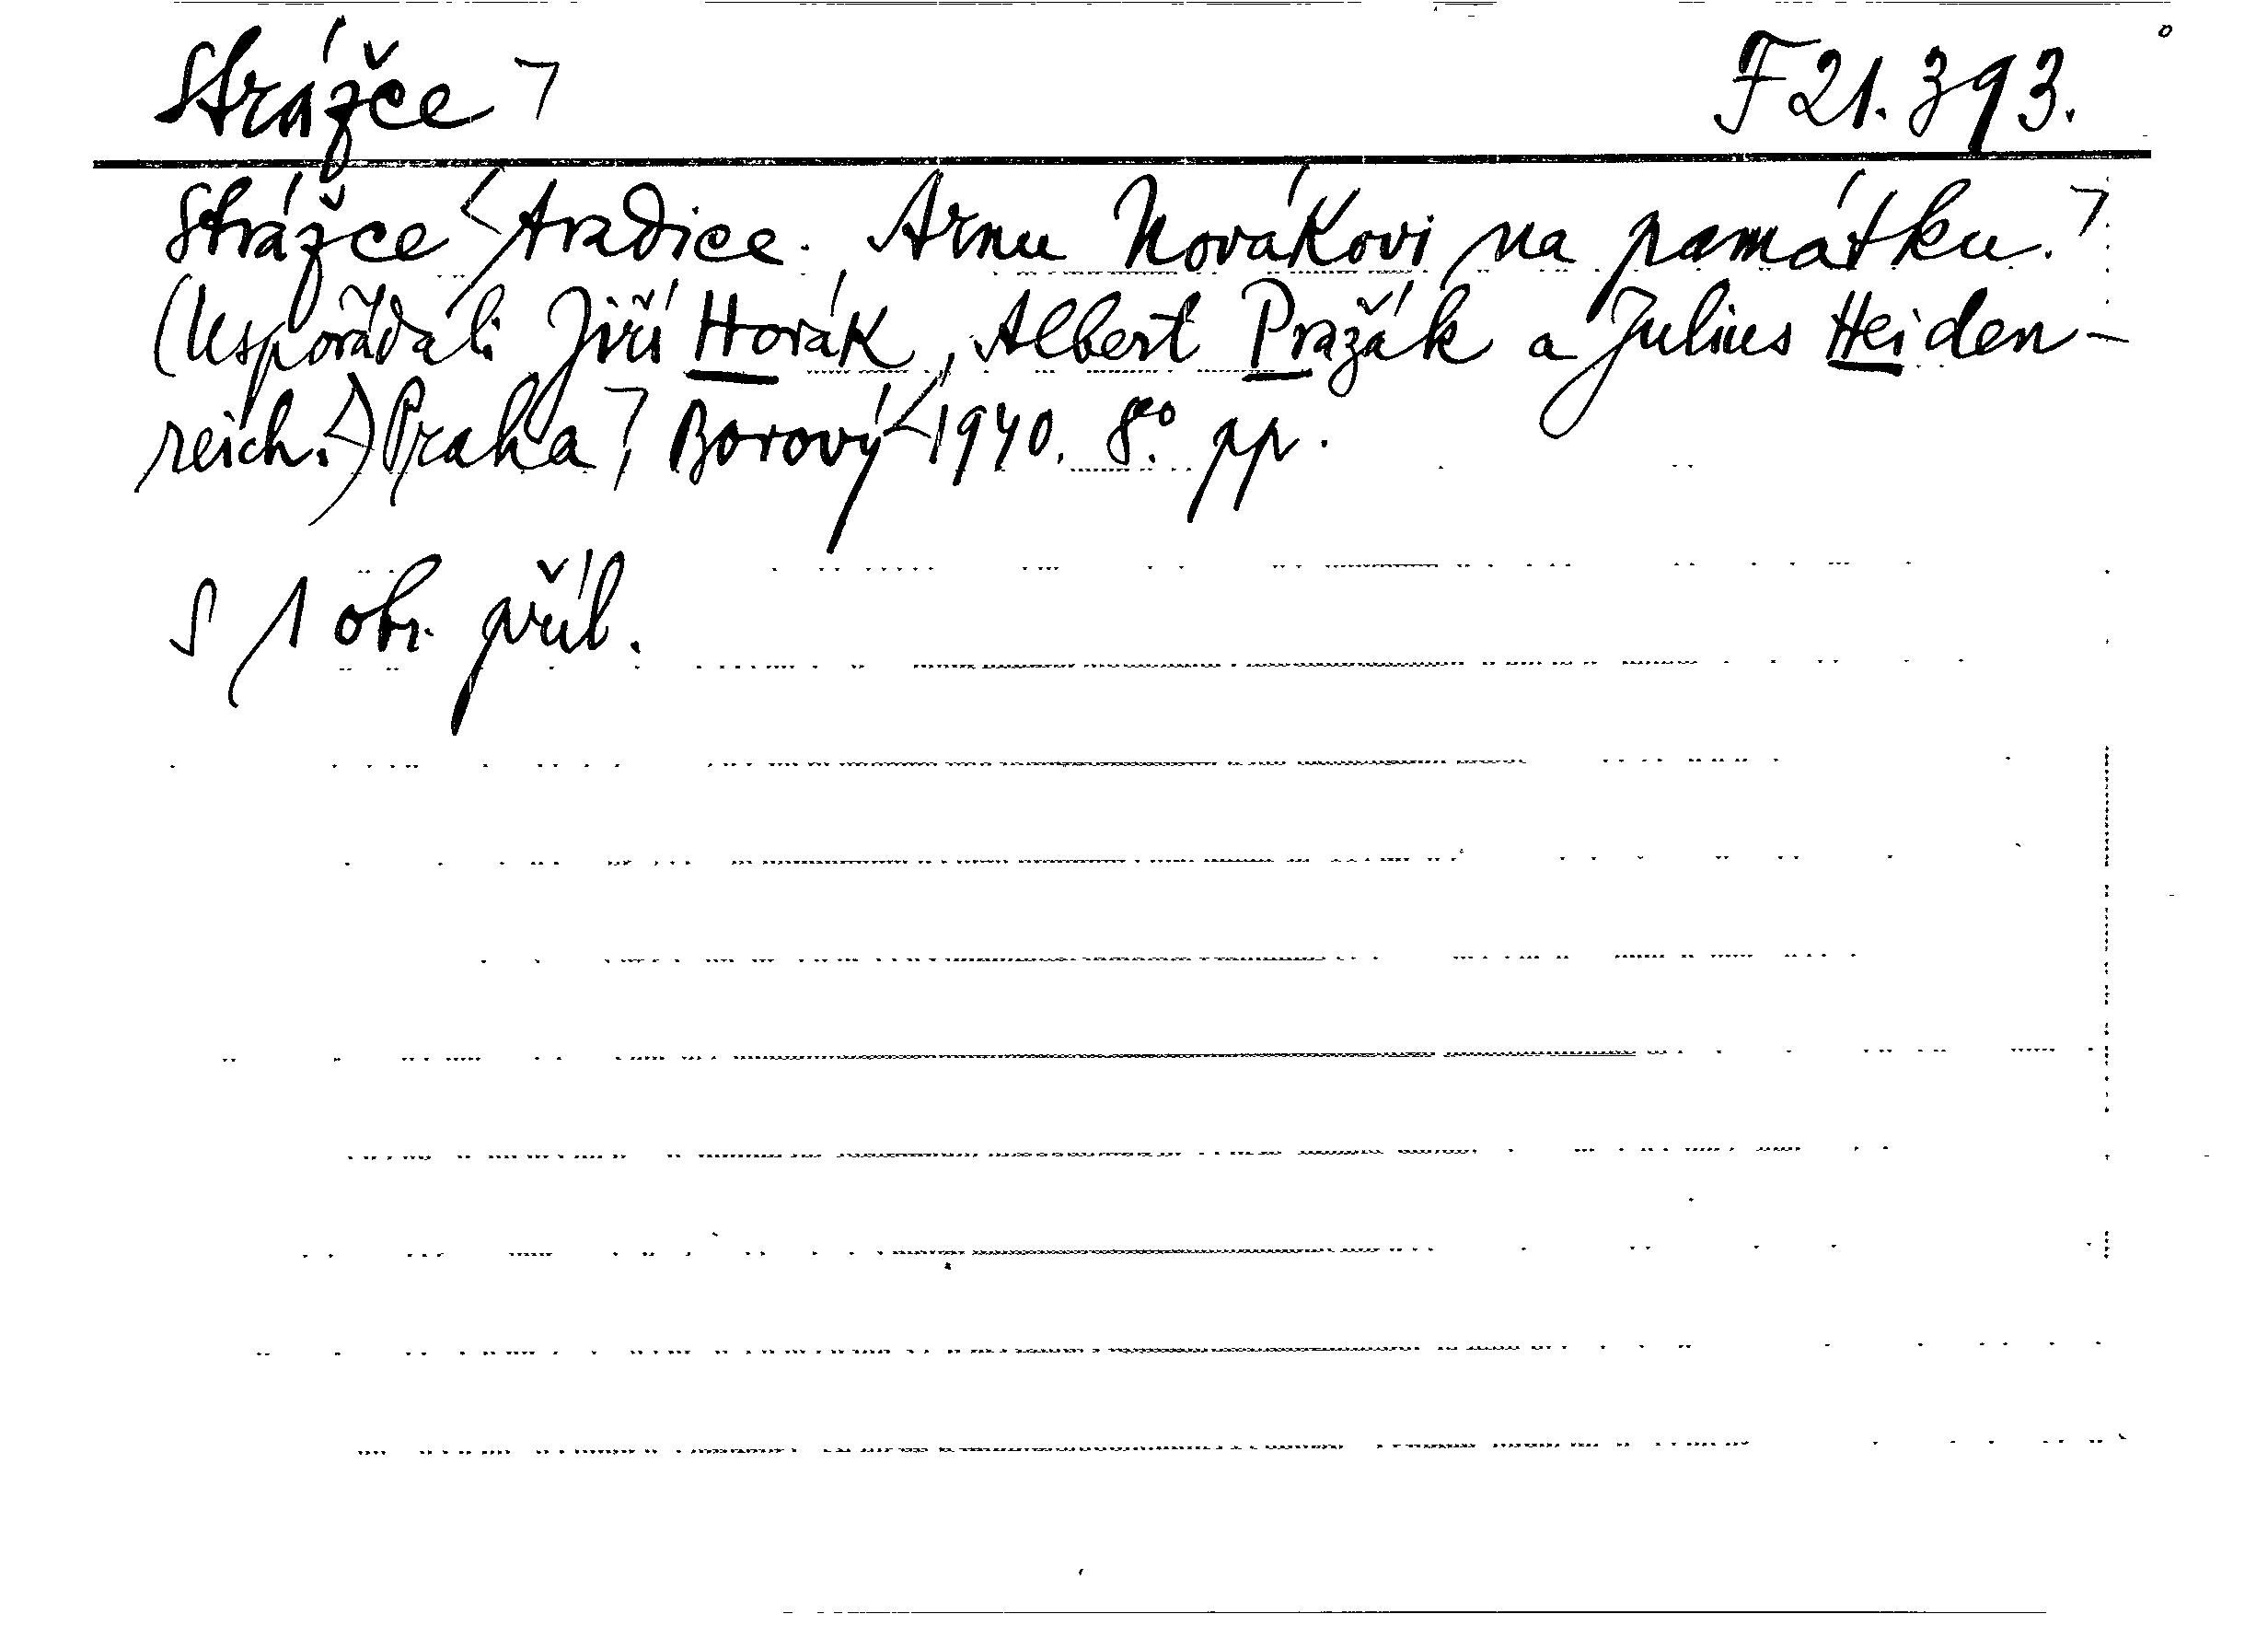 Strážce F 21.393.
Strážce tradice. Arnu Novákovi na památku.
(Uspořádali Jiří Horák, Albert Pražák a Julius Heiden-
reich.) Praha, Borový 1940. 8° pp.
S 1 obr. příl.